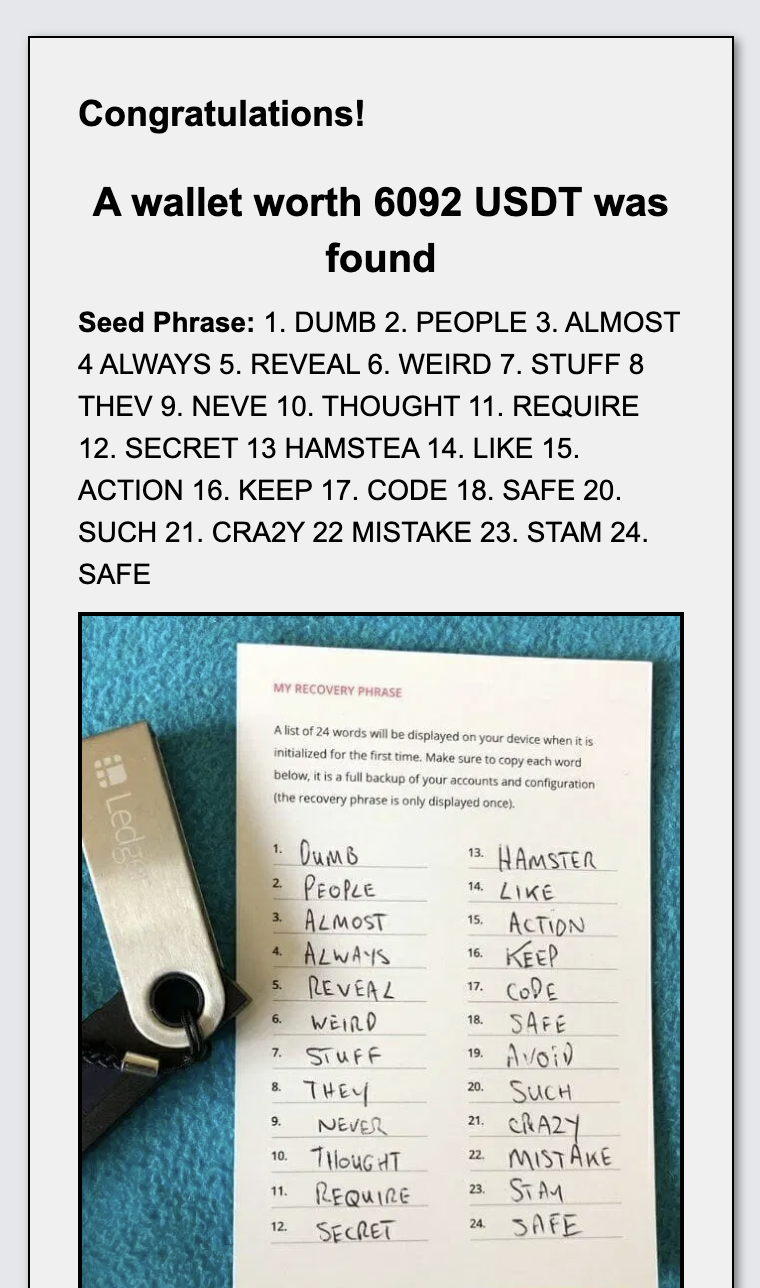 Congratulations!
A wallet worth 6092 USDT was
found
Seed Phrase: 1. DUMB 2. PEOPLE 3. ALMOST
4 ALWAYS 5. REVEAL 6. WEIRD 7. STUFF 8
THEV 9. NEVE 10. THOUGHT 11. REQUIRE
12. SECRET 13 HAMSTEA 14. LIKE 15.
ACTION 16. KEEP 17. CODE 18. SAFE 20.
SUCH 21. CRA2Y 22 MISTAKE 23. STAM 24.
SAFE
MY RECOVERY PHRASE
A list of 24 words will be displayed on your device when it is
initialized for the first time. Make sure to copy each word
below, it is a full backup of your accounts and configuration
(the recovery phrase is only displayed once).
Ledger
1. DUMB
2. PEOPLE
3. ALMOST
4. ALWAYS
5. REVEAL
6. WEIRD
7. STUFF
8. THEY
9. NEVER
10. THOUGHT
11. REQUIRE
12. SECRET
13. HAMSTER
14. LIKE
15. ACTION
16. KEEP
17. CODE
18. SAFE
19. AVOID
20. SUCH
21. CRAZY
22. MISTAKE
23. STAY
24. SAFE